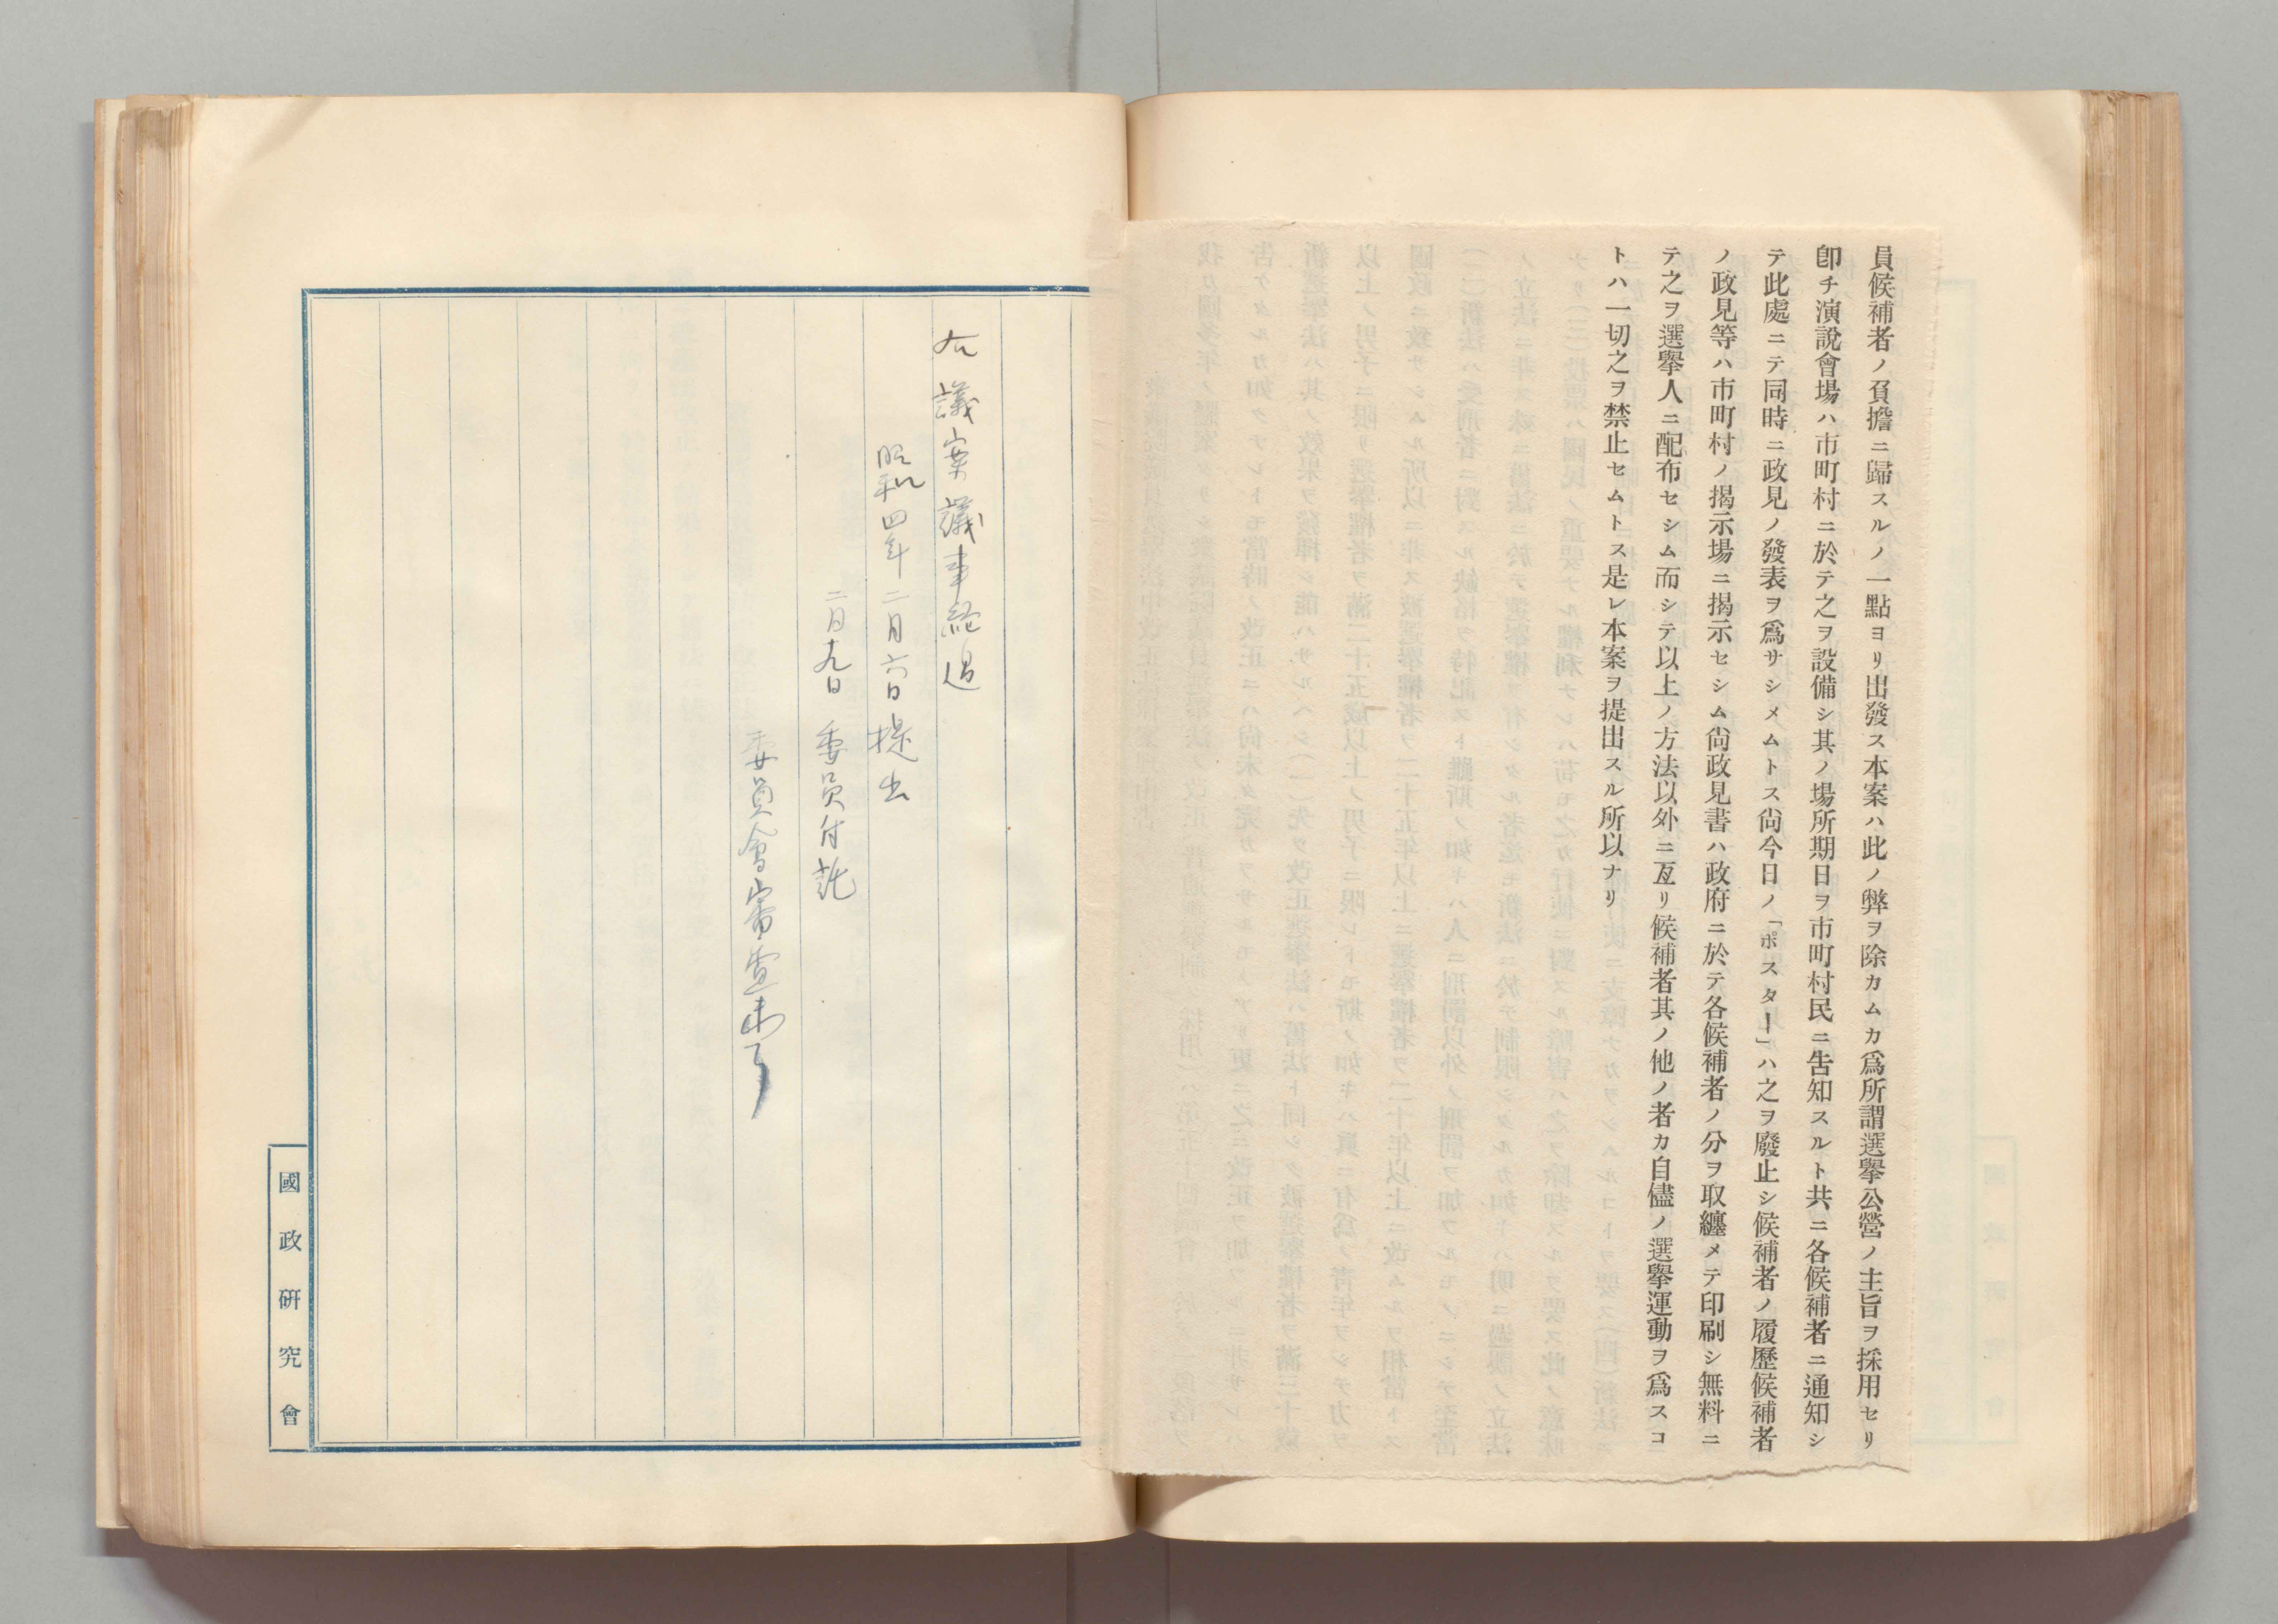 員候補者ノ負擔ニ歸スルノ一點ヨリ出發ス本案ハ此ノ弊ヲ除カムカ爲所謂選擧公營ノ主旨ヲ採用セリ
卽チ演說會場ハ市町村ニ於テ之ヲ設備シ其ノ場所期日ヲ市町村民ニ吿知スルト共ニ各候補者ニ通知シ
テ此處ニテ同時ニ政見ノ發表ヲ爲サシメムトス尙今日ノ「ポスター」ハ之ヲ廢止シ候補者ノ履歷候補者
ノ政見等ハ市町村ノ揭示場ニ揭示セシム尙政見書ハ政府ニ於テ各候補者ノ分ヲ取纏メテ印刷シ無料ニ
テ之ヲ選擧人ニ配布セシム而シテ以上ノ方法以外ニ亙リ候補者其ノ他ノ者カ自儘ノ選擧運動ヲ爲スコ
トハ一切之ヲ禁止セムトス是レ本案ヲ提出スル所以ナリ
右議案議事経過
昭和四年二月六日提出
二月九日委員付託
委員會審査未了
國政硏究會